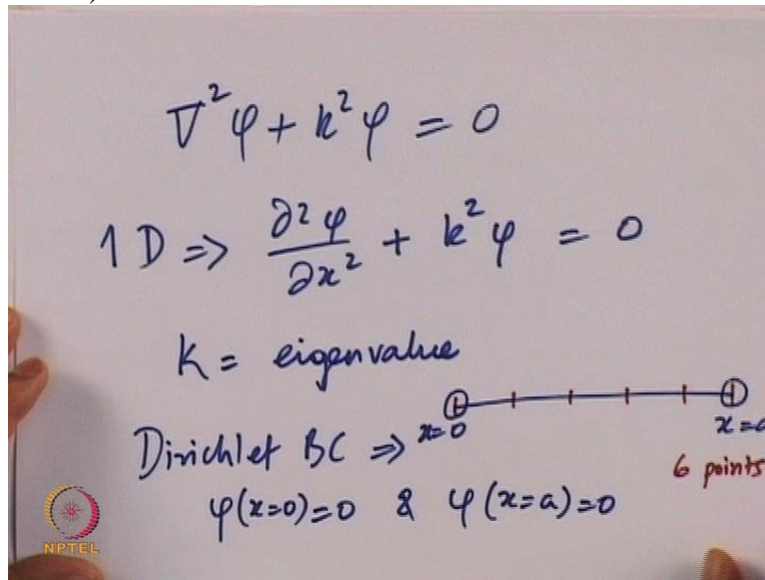 ∇²φ + k²φ = 0
1D ⇒ ∂²φ/∂x² + k²φ = 0
K = eigenvalue
x=0 x=a
Dirichlet BC ⇒ 6 points
φ(x=0)=0 & φ(x=a)=0
NPTEL